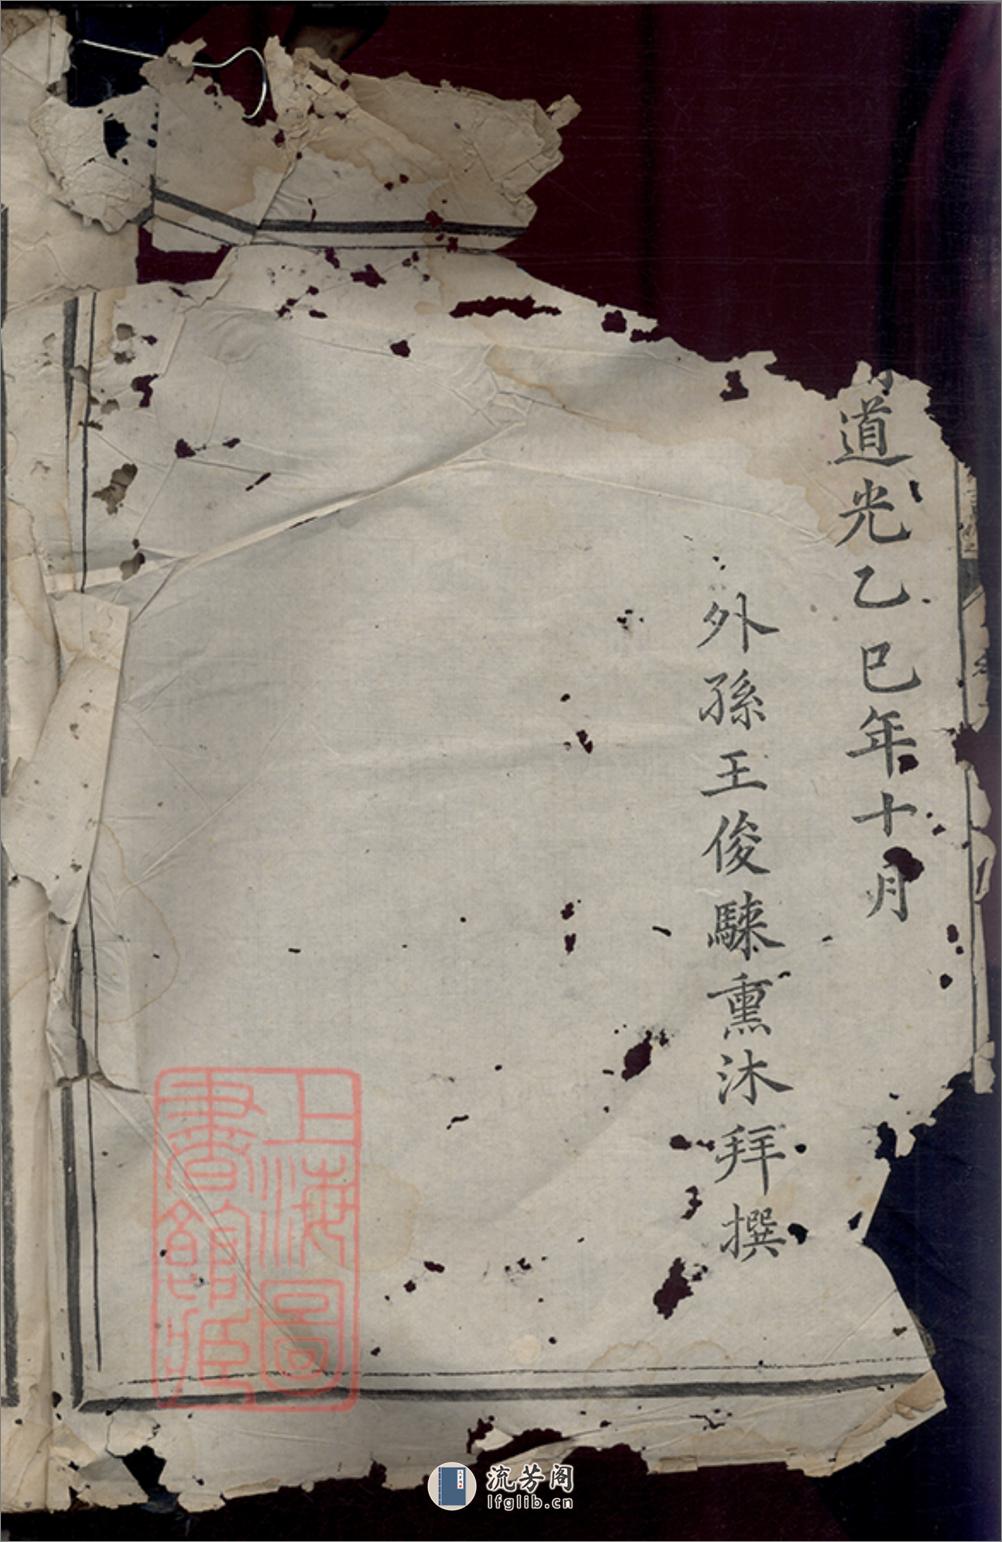 道光乙巳年十月
外孫王俊騋熏沐拜撰
上海圖
書館藏
流芳阁
lfglib.cn